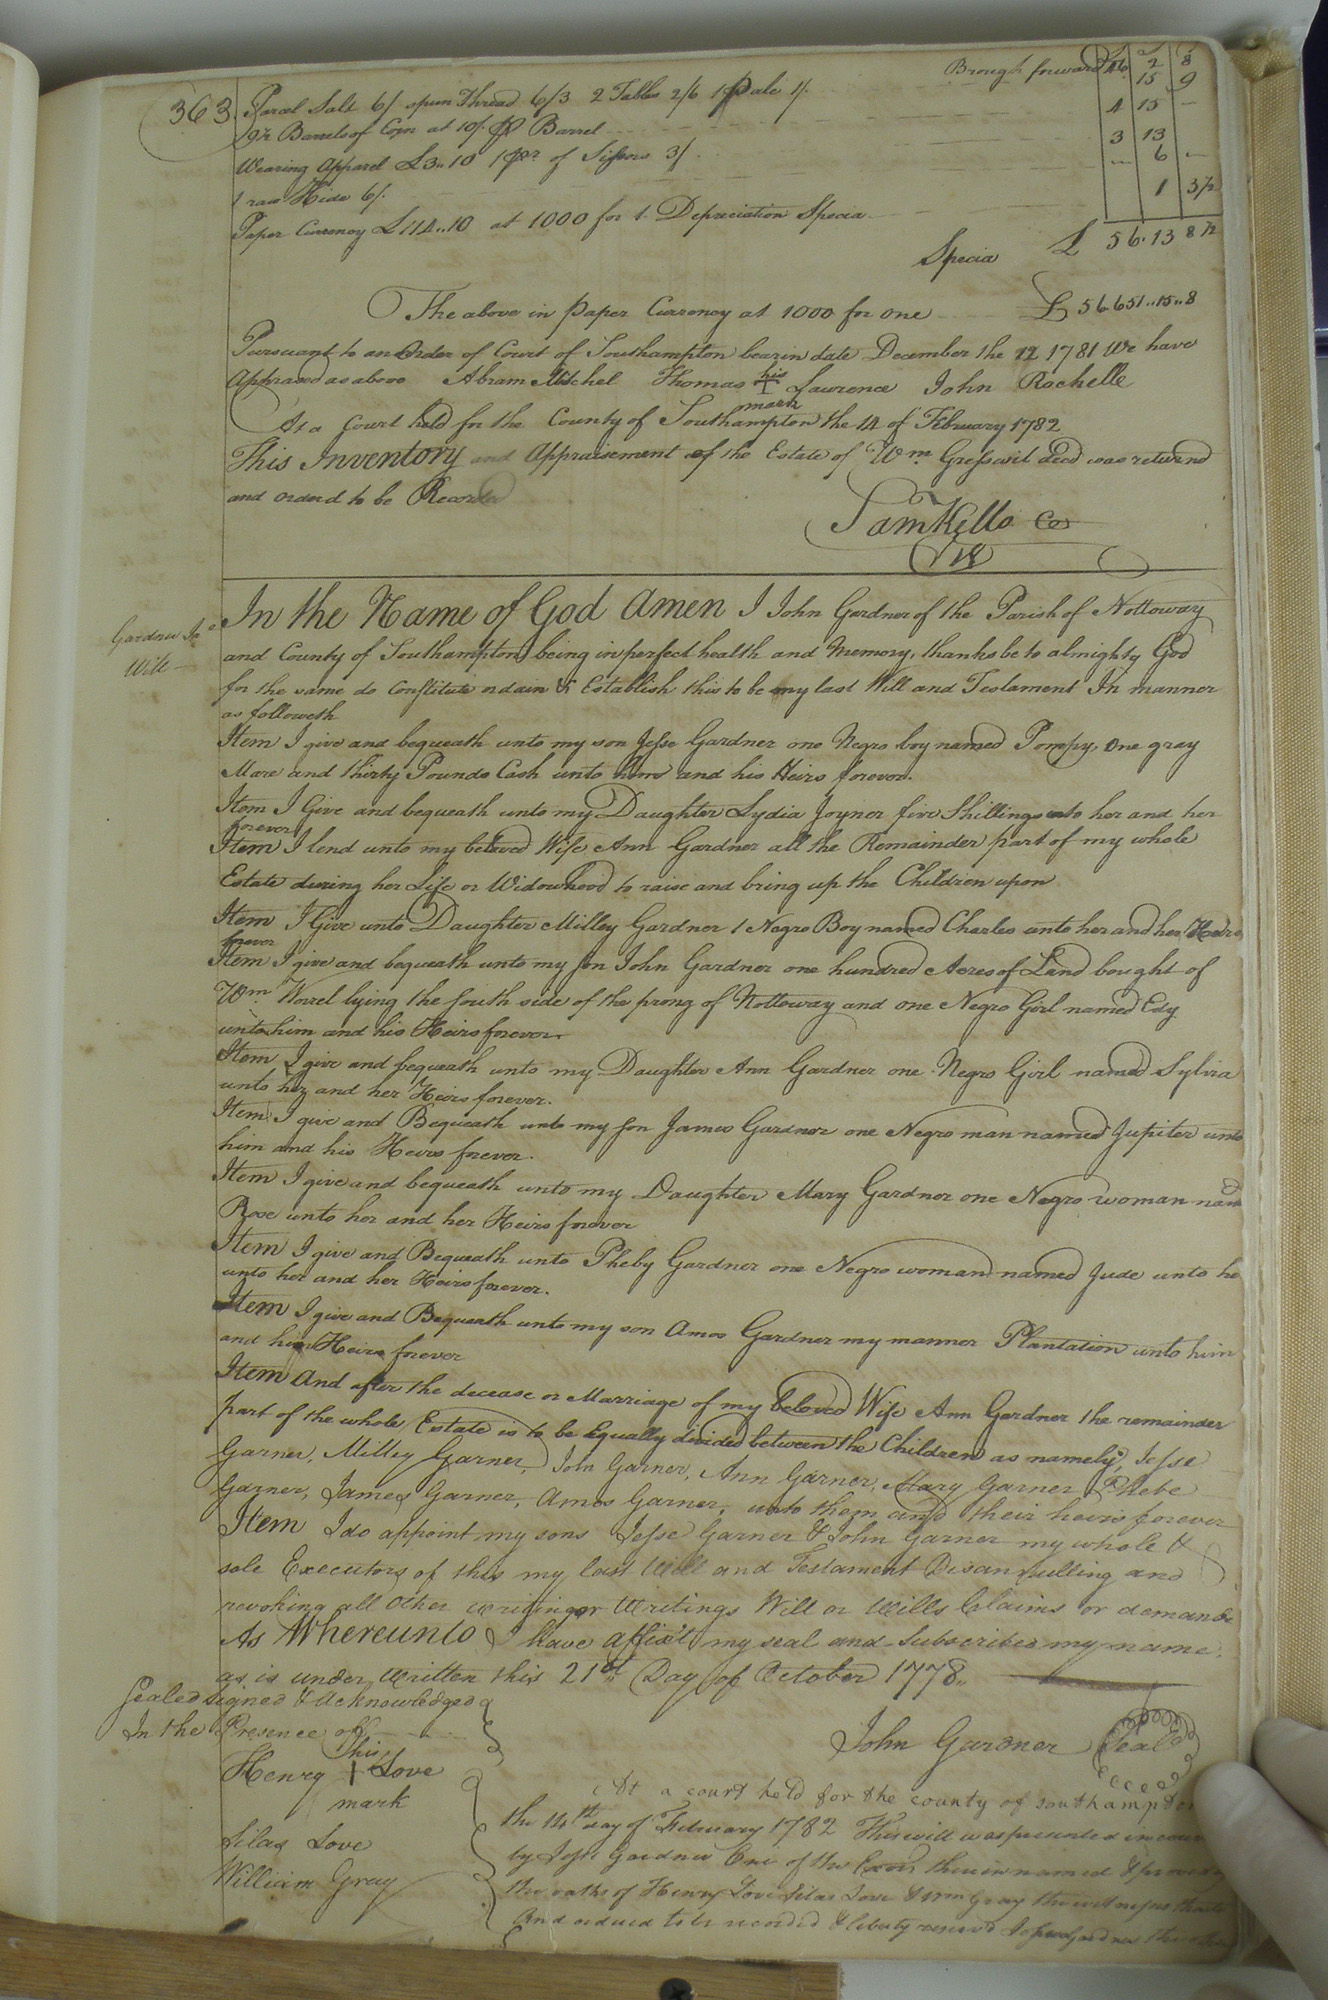 363.
Brough forward £46 2 8
Parcel Salt 6/ spun Thread 6/3 2 Tables 2/6 1 Pale 1/. 15 9
9½ Barrels of Corn at 10/. Barrel 4 15 —
Wearing Apparel £3..10 1 pr of Sissors 3/ 3 13
1 raw Hide 6/. — 6 —
Paper Currency £114..10 at 1000 for 1. Depreciation Specia 1 3½
Specia £ 56. 13 8½
The above in Paper Currency at 1000 for one £ 56651..15..8
Pursuant to an Order of Court of Southampton bearin date December the 12 1781 We have
Appraised as above Abram Mitchel Thomas his I mark Lawrence John Rochelle
At a Court held for the County of Southampton the 14 of February 1782
This Inventory and Appraisement of the Estate of Wm. Gresswit decd was returnd
and orderd to be Recorded
Sam Kello Co
Gardner Jno
Will
In the Name of God Amen I John Gardner of the Parish of Nottoway
and County of Southampton being in perfect health and Memory, thanks be to almighty God
for the same do Constitute ordain & Establish this to be my last Will and Testament In manner
as followeth
Item I give and bequeath unto my son Jesse Gardner one Negro boy named Pompy, One gray
Mare and thirty Pounds Cash unto him and his Heirs forever.
Item I Give and bequeath unto my Daughter Lydia Joyner five Shillings unto her and her
forever
Item I lend unto my beloved Wife Ann Gardner all the Remainder part of my whole
Estate during her Life or Widowhood to raise and bring up the Children upon
Item I Give unto Daughter Milley Gardner 1 Negro Boy named Charles unto her and her Heirs
forever
Item I give and bequeath unto my son John Gardner one hundred Acres of Land bought of
Wm. Worrel lying the south side of the prong of Nottoway and one Negro Girl named Edy
unto him and his Heirs forever.
Item I give and bequeath unto my Daughter Ann Gardner one Negro Girl named Sylvia
unto her and her Heirs forever.
Item I give and Bequeath unto my son James Gardner one Negro man named Jupiter unto
him and his Heirs forever.
Item I give and bequeath unto my Daughter Mary Gardner one Negro woman namd
Rose unto her and her Heirs forever
Item I give and Bequeath unto Pheby Gardner one Negro woman named Jude unto he
unto her and her Heirs forever.
Item I give and Bequeath unto my son Amos Gardner my manner Plantation unto him
and his Heirs forever
Item And after the decease or Marriage of my beloved Wife Ann Gardner the remainder
part of the whole Estate is to be Equally divided between the Children as namely, Jesse
Garner, Milley Garner, John Garner, Ann Garner, Mary Garner Phebe
Garner, James Garner, Amos Garner, unto them and their heirs forever
Item I do appoint my sons Jesse Garner & John Garner my whole &
sole Executors of this my last Will and Testament Disannulling and
revoking all Other writing or Writings Will or Wills Claims or demands
As Whereunto I have affix't my seal and Subscribed my name
as is under written this 21st Day of October 1778.
Sealed signed & acknowledged
In the Presence of
Henry his + mark Love
Silas Love
William Gray
John Gardner Seal
At a court held for the county of Southampton
the 14th day of February 1782 This will was presented in cour
by Jesse Gardner One of the Exors therein named & proved by
the oaths of Henry Love Silas Love & Wm Gray the witnesses thereto
And ordered to be recorded & liberty reserv'd